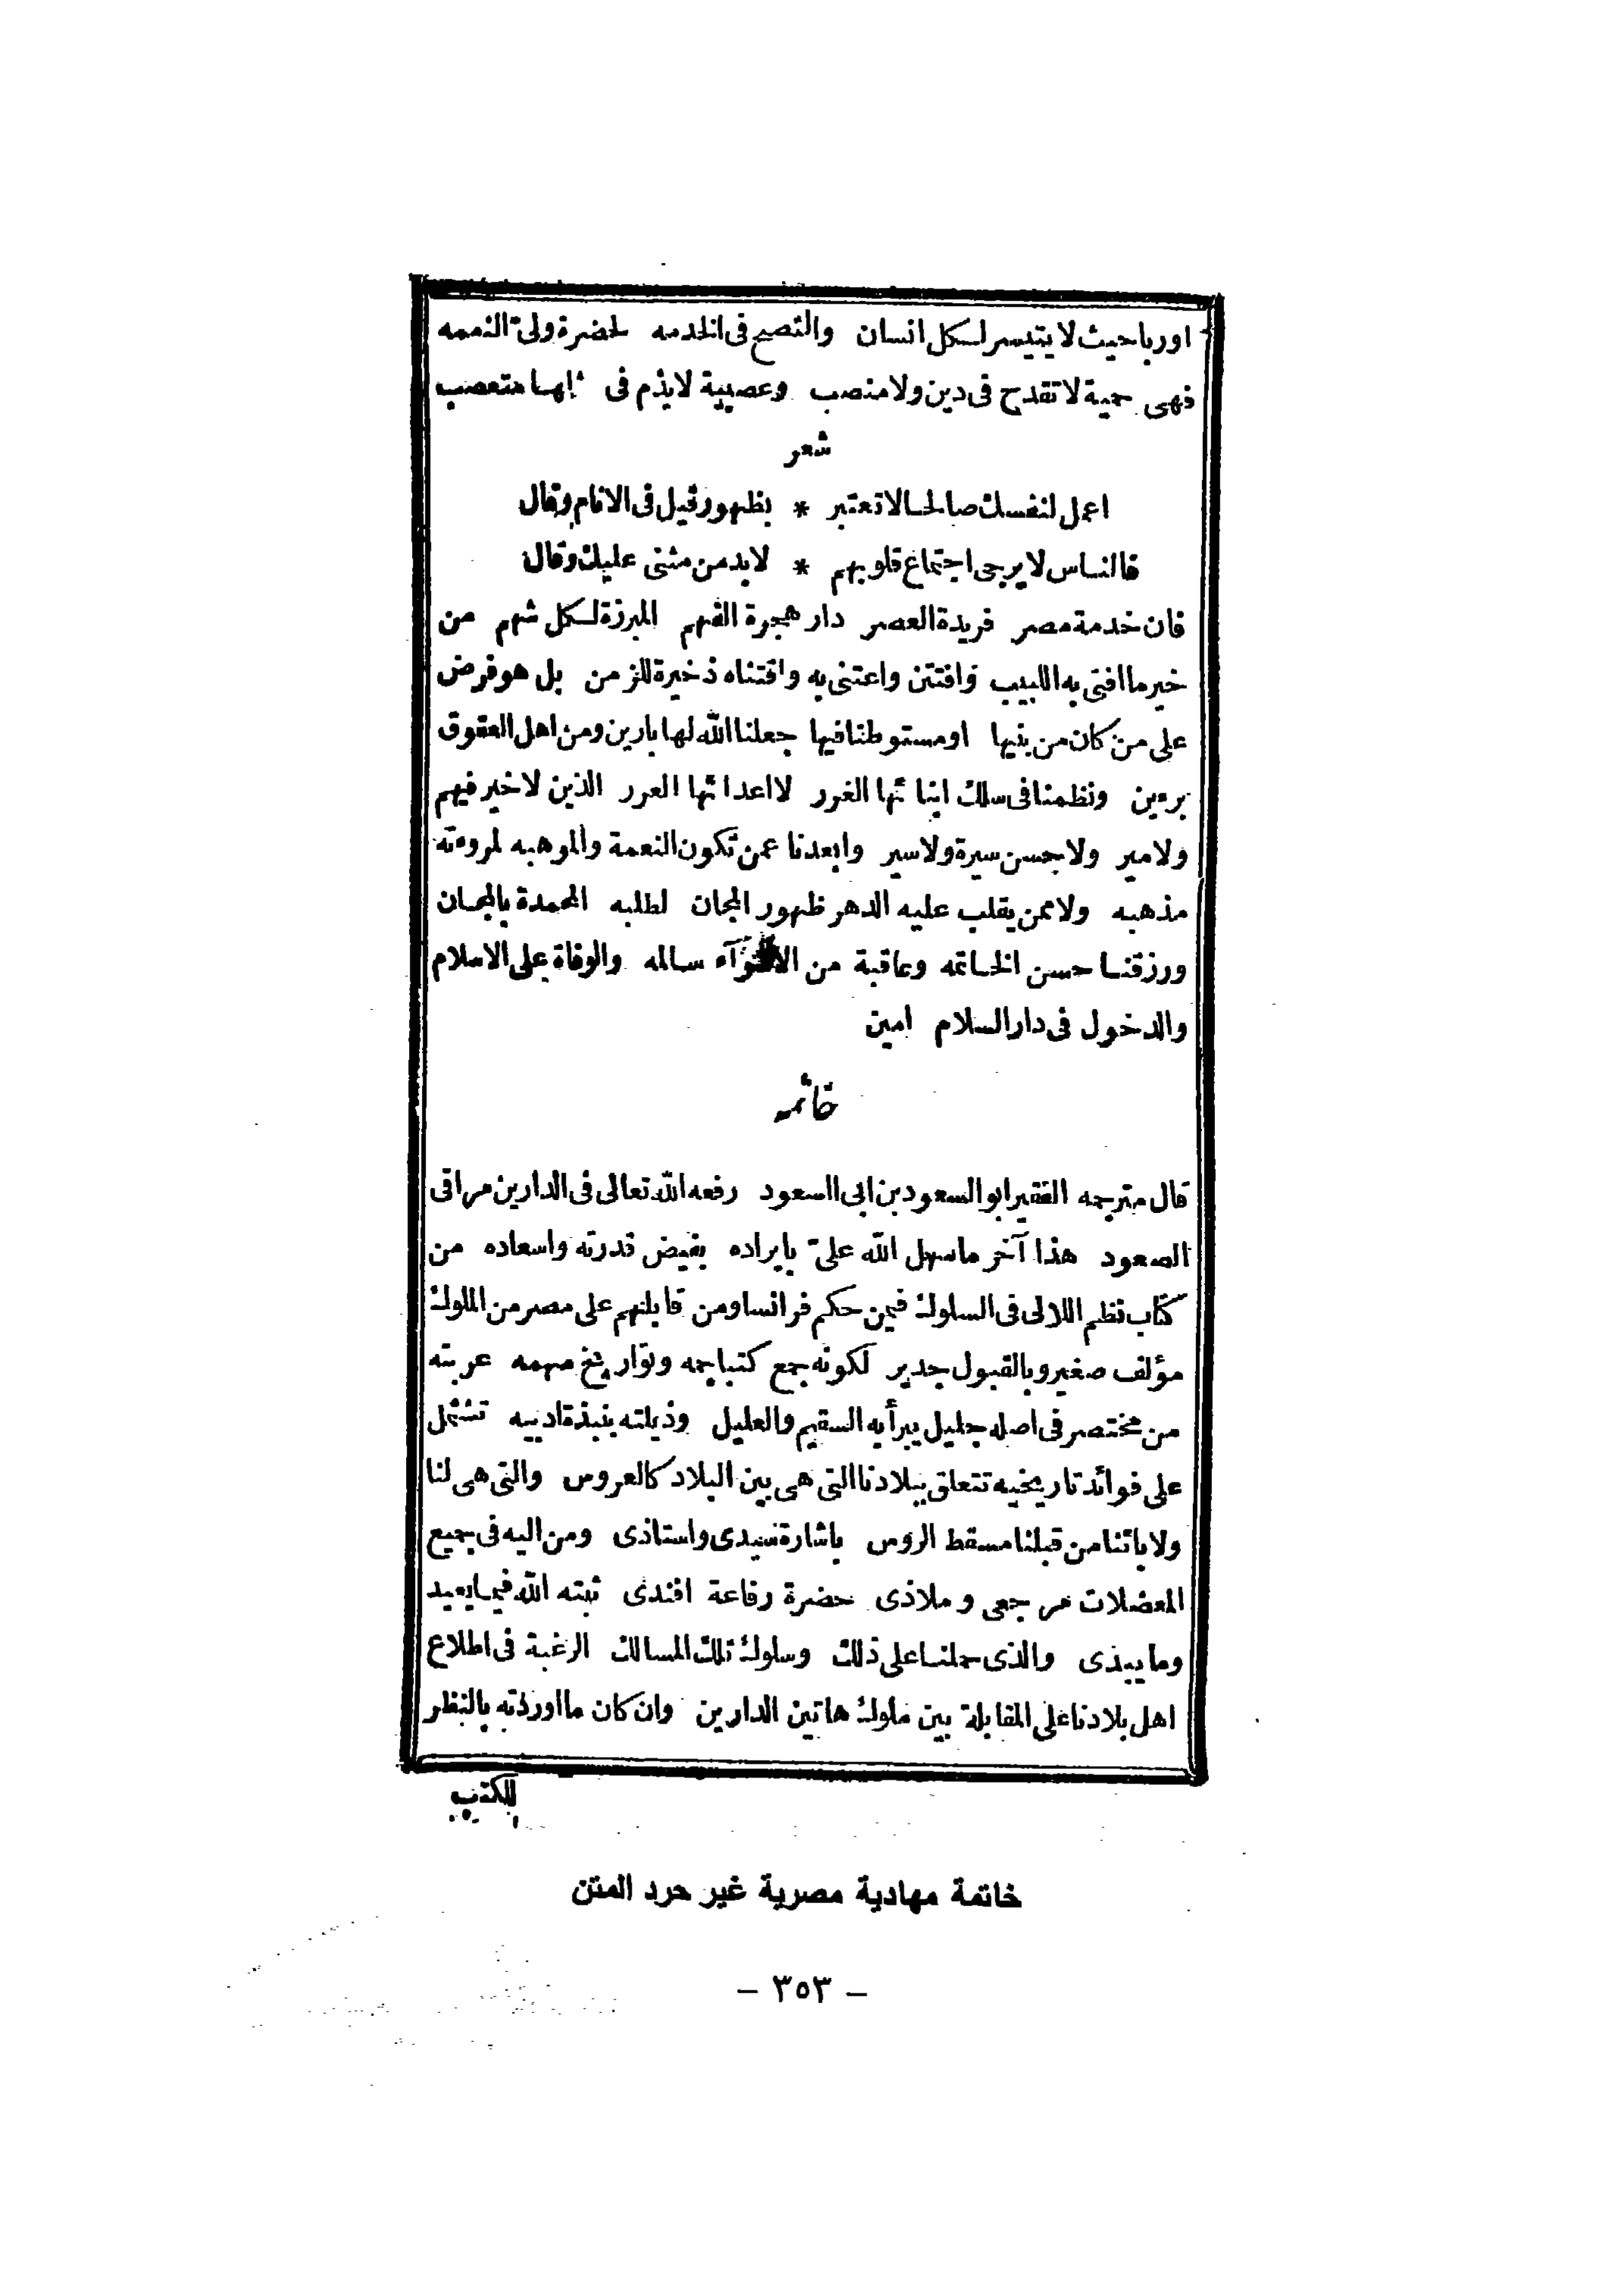 اوربا حيث لا يتيسر لكل انسان والنصح فى الخدمه لحضرة ولىّ النعمه
فهى حمية لا تقدح فى دين ولا منصب وعصبية لا يذم فى متعصب
شعر
اعمل لنفسك صالحا لا تعتبر * بظهور قيل فى الانام وقال
فالناس لا يرجى اجتماع قلوبهم * لا بد من مثنى عليك وقال
فان خدمة مصر فريدة العصر دار هجرة الفهم المبرزة لكل شهم من
خير ما افتى به اللبيب وافتتن واعتنى به واقتناه ذخيرة للزمن بل هو فرض
على من كان من بنيها او مستوطنا فيها جعلنا الله لها بارين ومن اهل العقوق
برءين ونظمنا فى سلك ابنائها الغرر لا اعدائها العرر الذين لا خير فيهم
ولا مير ولا حسن سيرة ولا سير وابعدنا عمن تكون النعمة والموهبه لمروءته
مذهبه ولا ممن يقلب عليه الدهر ظهور المجان لطلبه المحمدة بالمجان
ورزقنا حسن الخاتمه وعاقبة من سالمه والوفاة على الاسلام
والدخول فى دار السلام امين
خاتمه
قال مترجمه الفقير ابو السعود بن ابى السعود رفعه الله تعالى فى الدارين مراقى
الصعود هذا آخر ما سهل الله علىّ بايراده بفيض قدرته واسعاده من
كتاب نظم اللالى فى السلوك فيمن حكم فرانسا ومن قابلهم على مصر من الملوك
مؤلف صغير وبالقبول جدير لكونه جمع كتبا جمه وتواريخ مهمه عربته
من مختصر فى اصله جليل يبرأ به السقيم والعليل وذيلته بنبذة ادبيه تشتمل
على فوائد تاريخيه تتعلق ببلادنا التى هى بين البلاد كالعروس والتى هى لنا
ولابائنا من قبلنا مسقط الروس باشارة سيدى واستاذى ومن اليه فى جميع
المعضلات مرجعى وملاذى حضرة رفاعة افندى ثبته الله فيما يعيد
وما يبدى والذى حملنا على ذلك وسلوك تلك المسالك الرغبة فى اطلاع
اهل بلادنا على المقابلة بين ملوك هاتين الدارين وان كان ما اوردته بالنظر
للكتب
خاتمة مهادية مصرية غير حرد المتن
– ٣٥٣ –